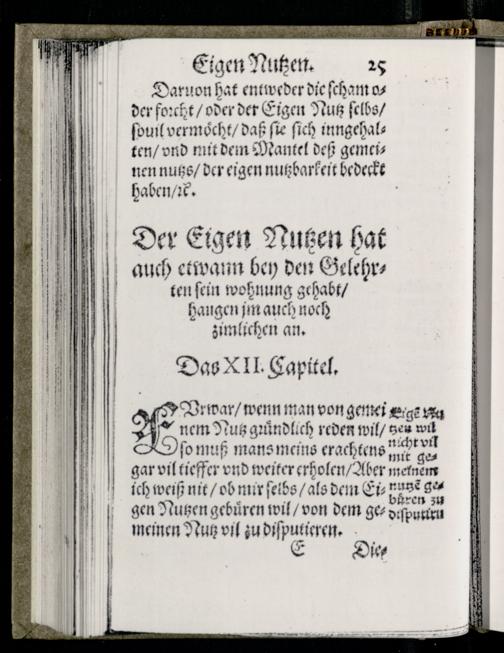 Eigen Nutzen. 25
Daruon hat entweder die scham o-
der forcht / oder der Eigen Nutz selbs /
souil vermöcht / daß sie sich inngehal-
ten / vnd mit dem Mantel deß gemei-
nen nutzs / der eigen nutzbarkeit bedeckt
haben / ꝛc.
Der Eigen Nutzen hat
auch etwann bey den Gelehr-
ten sein wohnung gehabt /
hangen jm auch noch
zimlichen an.
Das XII. Capitel.
FVrwar / wenn man von gemei
nem Nutz gründlich reden wil /
so muß mans meins erachtens
gar vil tieffer vnd weiter erholen / Aber
ich weiß nit / ob mir selbs / als dem Ei-
gen Nutzen gebüren wil / von dem ge-
meinen Nutz vil zu disputieren.
Eigē Nu
tzen wil
nicht vil
mit ge-
meinem
nutzē ge-
büren zu
disputirn
E Die-